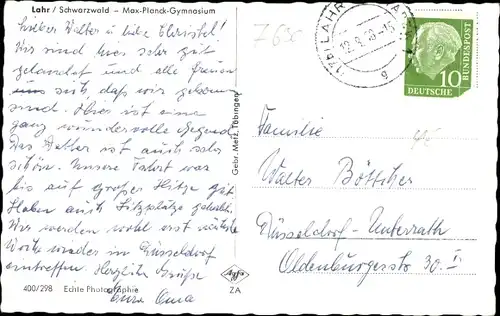 Lahr / Schwarzwald – Max-Planck-Gymnasium
Lieber Walter u liebe Christel!
Wir sind hier sehr gut
gelandet und alle freuen
sich, daß wir gekommen
sind. Hier ist eine
ganz wundervolle Gegend
Das Wetter ist auch sehr
schön. Unsere Fahrt war
bis auf große Hitze gut
Haben auch Sitzplätze gehabt.
Wir werden wohl erst nächste
Woche wieder in Düsseldorf
eintreffen. Herzliche Grüße
Eure Oma
400/298 Echte Photographie
Gebr. Metz, Tübingen
Agfa
ZA
LAHR
10
DEUTSCHE
BUNDESPOST
Familie
Walter Böttcher
Düsseldorf-Unterrath
Oldenburgerstr 30. I